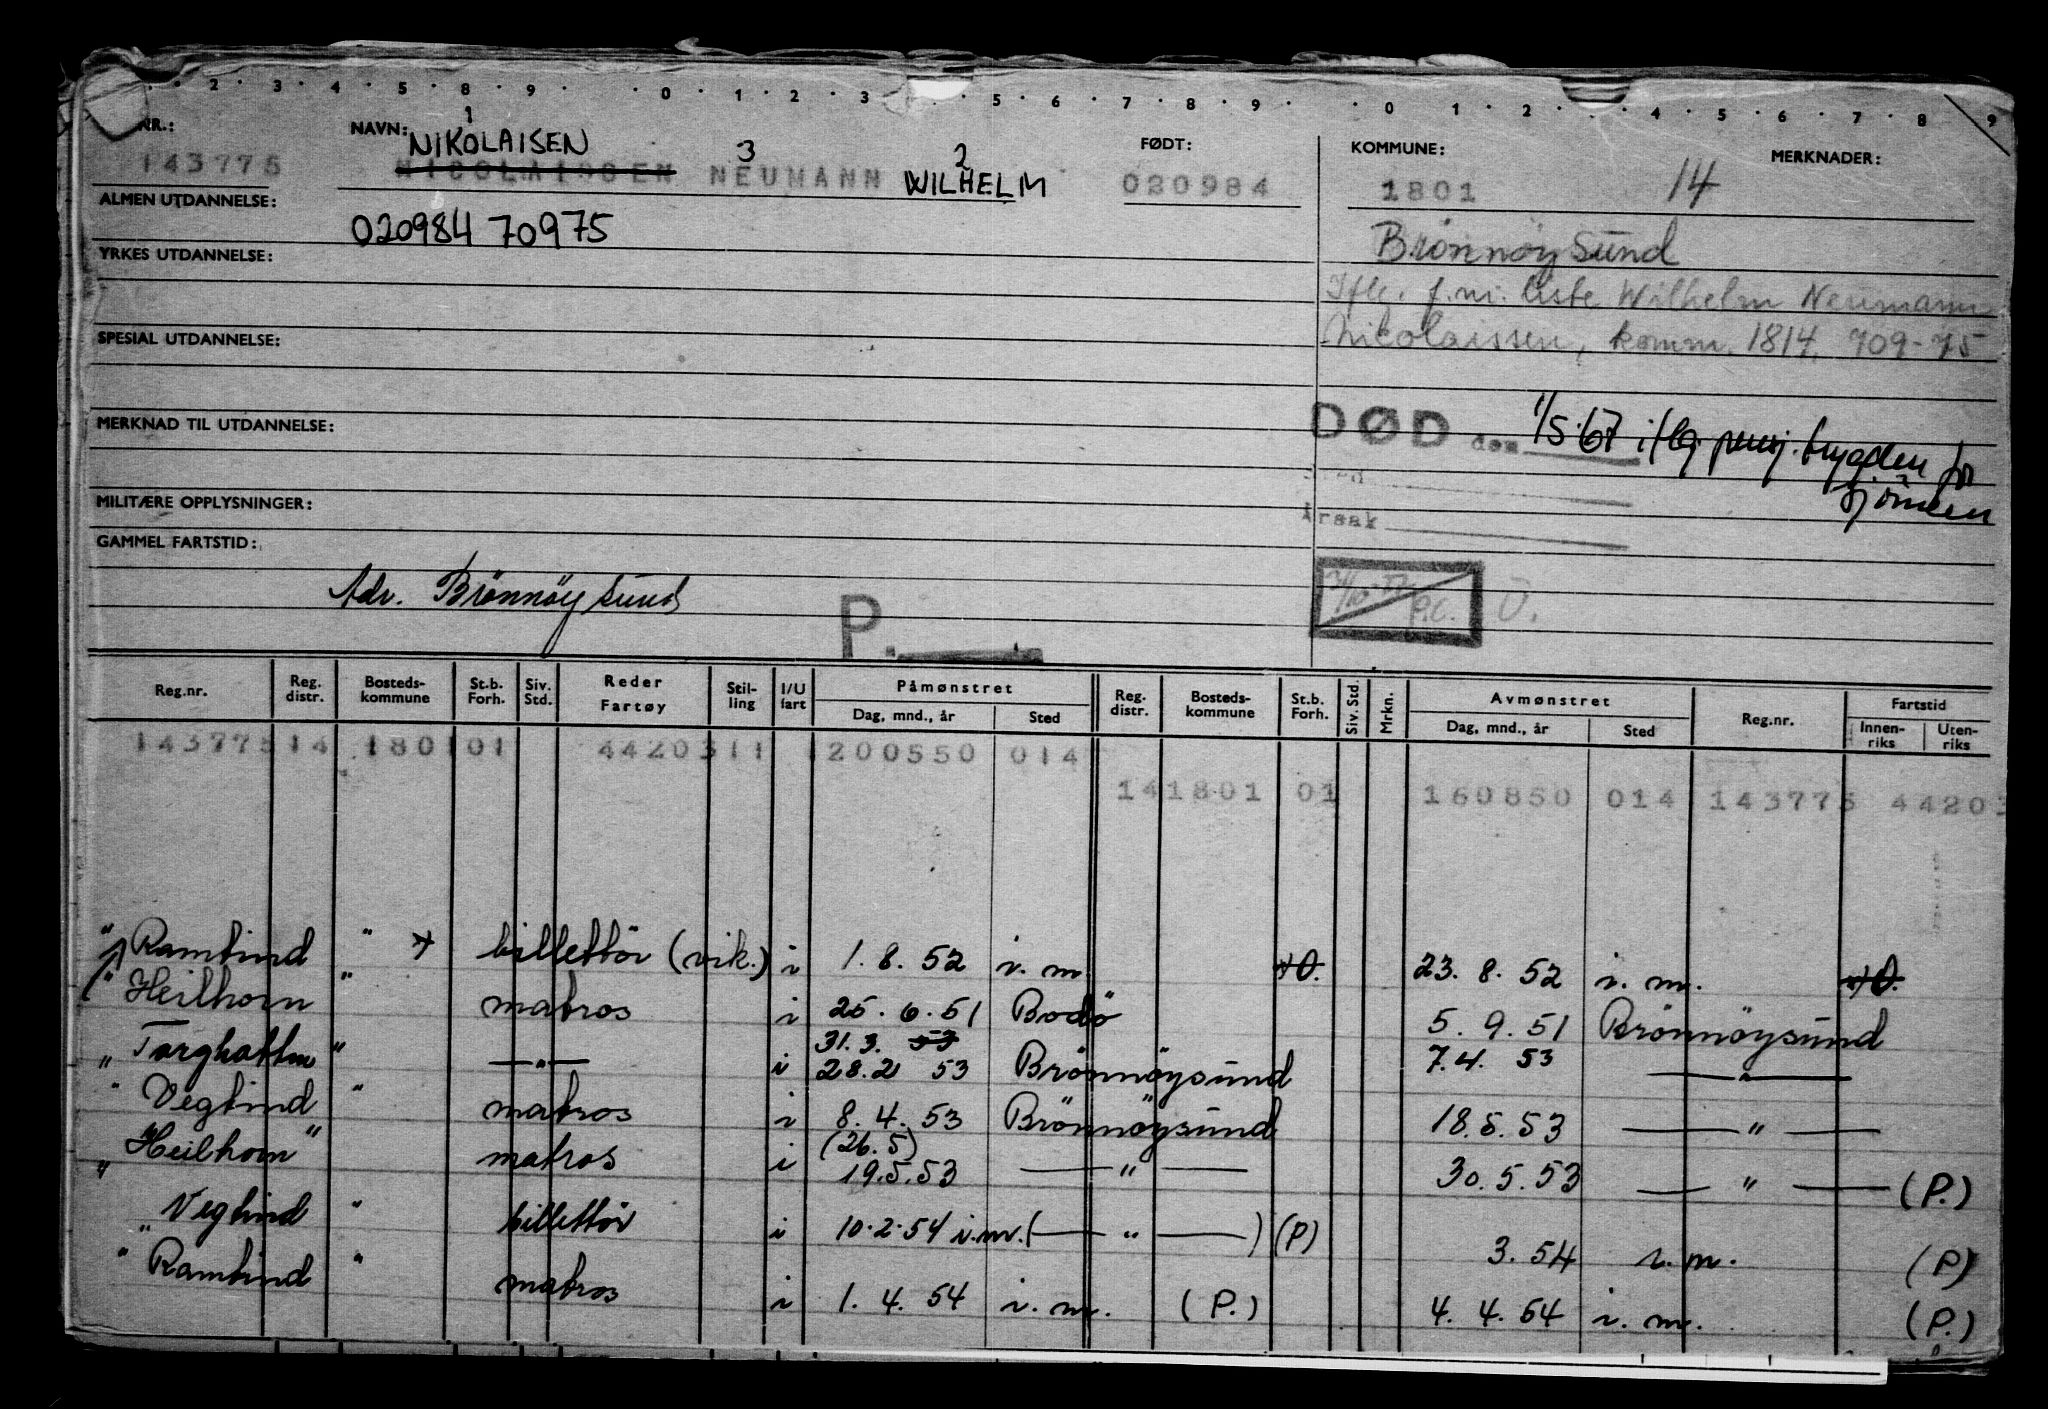 2 3 4 5 8 9 0 1 2 3 5 6 7 8 9 0 1 2 4 5 6 7 8 9
NR.: NAVN: 1 3 2 FØDT: KOMMUNE: MERKNADER:
NIKOLAISEN
143775 NICOLAISSEN NEUMANN WILHELM 020984 1801 14
ALMEN UTDANNELSE:
020984 70975 Brönnöysund
YRKES UTDANNELSE:
Iflg. f.m. liste Wilhelm Neumann
SPESIAL UTDANNELSE: Nicolaissen, komm. 1814. 709-75
MERKNAD TIL UTDANNELSE: DØD den 1/5-67 iflg. pensj. trygden for
sjömenn
MILITÆRE OPPLYSNINGER: Årsak
GAMMEL FARTSTID:
Adr. Brönnöysund P.
P.C.
Reg.nr. Reg. distr. Bosteds-kommune St.b. Forh. Siv. Std. Reder Fartøy Stil-ling I/U fart Påmønstret Dag, mnd., år Sted Reg. distr. Bosteds-kommune St.b. Forh. Siv. Std. Mrkn. Avmønstret Dag, mnd., år Sted Reg.nr. Fartstid Innen-riks Uten-riks
143775 14 1801 01 4420311 1 200550 014
141801 01 160850 014 143775 4420
"Ramtind" billettör (vik.) i 1. 8. 52 i. m. 23. 8. 52 i. m.
"Heilhorn" matros i 25. 6. 51 Bodö 5. 9. 51 Brönnöysund
31. 3. 53
"Torghatten" —„— i 28.2 53 Brönnöysund 7.4. 53 —„—
"Vegtind" matros i 8. 4. 53 Brönnöysund 18.5.53 —„—
(26.5)
"Heilhorn" matros i 19.5.53 —„— 30.5.53 —„— (P.)
"Vegtind" billettör i 10.2.54 i.m. (—„—) (P) 3. 54 i. m. (P)
"Ramtind" matros i 1. 4. 54 i. m. (P.) 4. 4. 54 i. m. (P.)